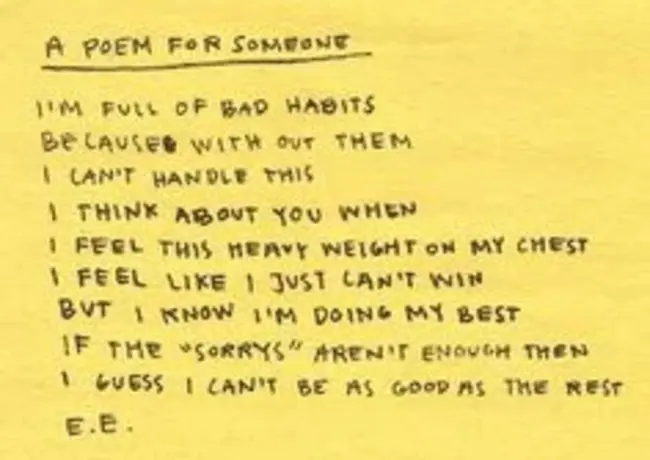 A POEM FOR SOMEONE
I'M FULL OF BAD HABITS
BECAUSE WITH OUT THEM
I CAN'T HANDLE THIS
I THINK ABOUT YOU WHEN
I FEEL THIS HEAVY WEIGHT ON MY CHEST
I FEEL LIKE I JUST CAN'T WIN
BUT I KNOW I'M DOING MY BEST
IF THE "SORRYS" AREN'T ENOUGH THEN
I GUESS I CAN'T BE AS GOOD AS THE REST
E.E.